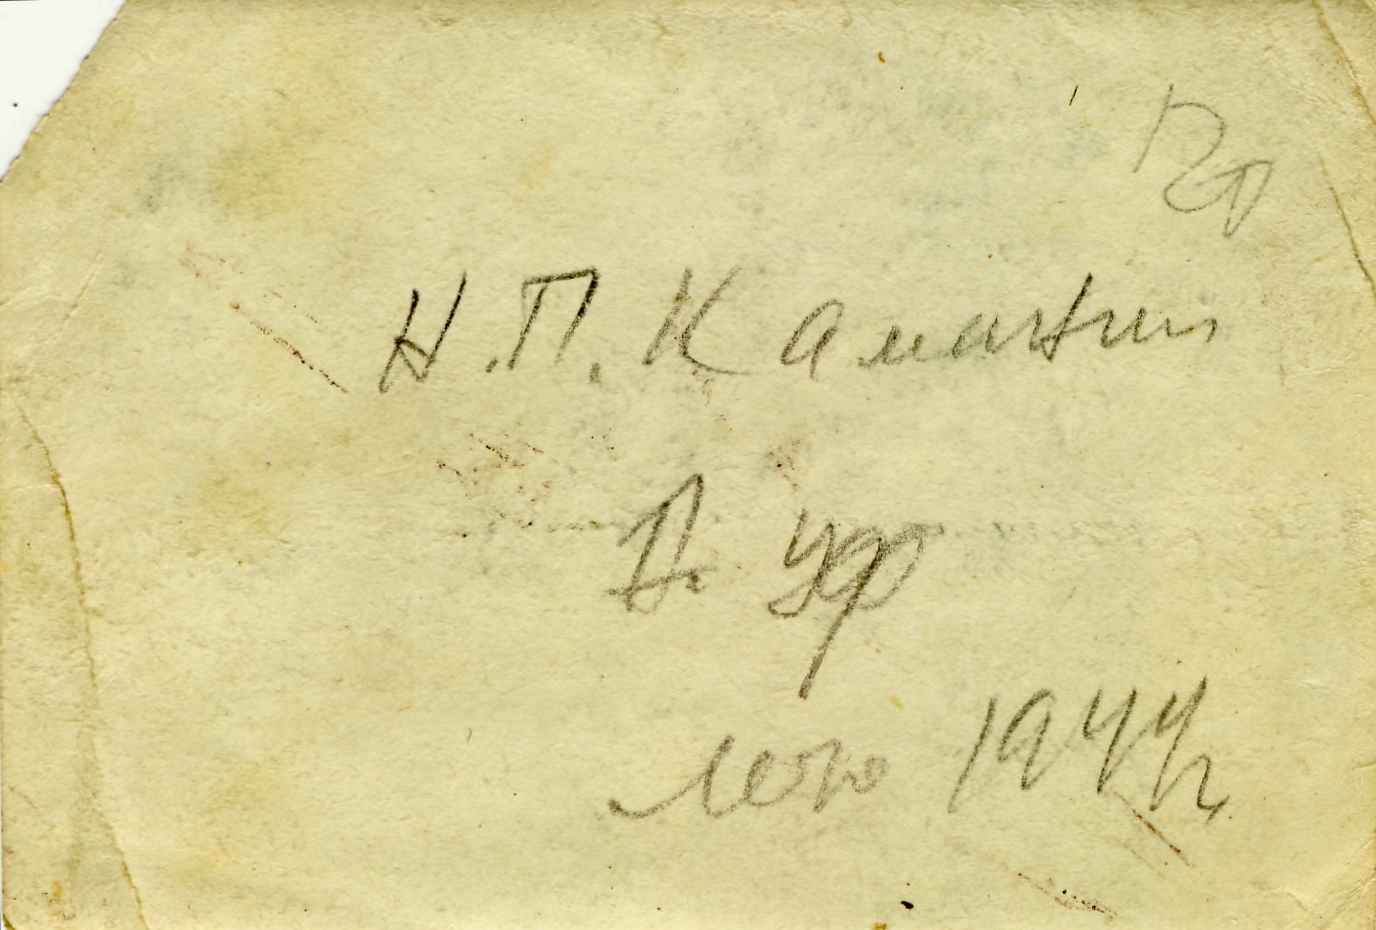 Н. П. Каманин
Д. Уф
лето 1944 г.